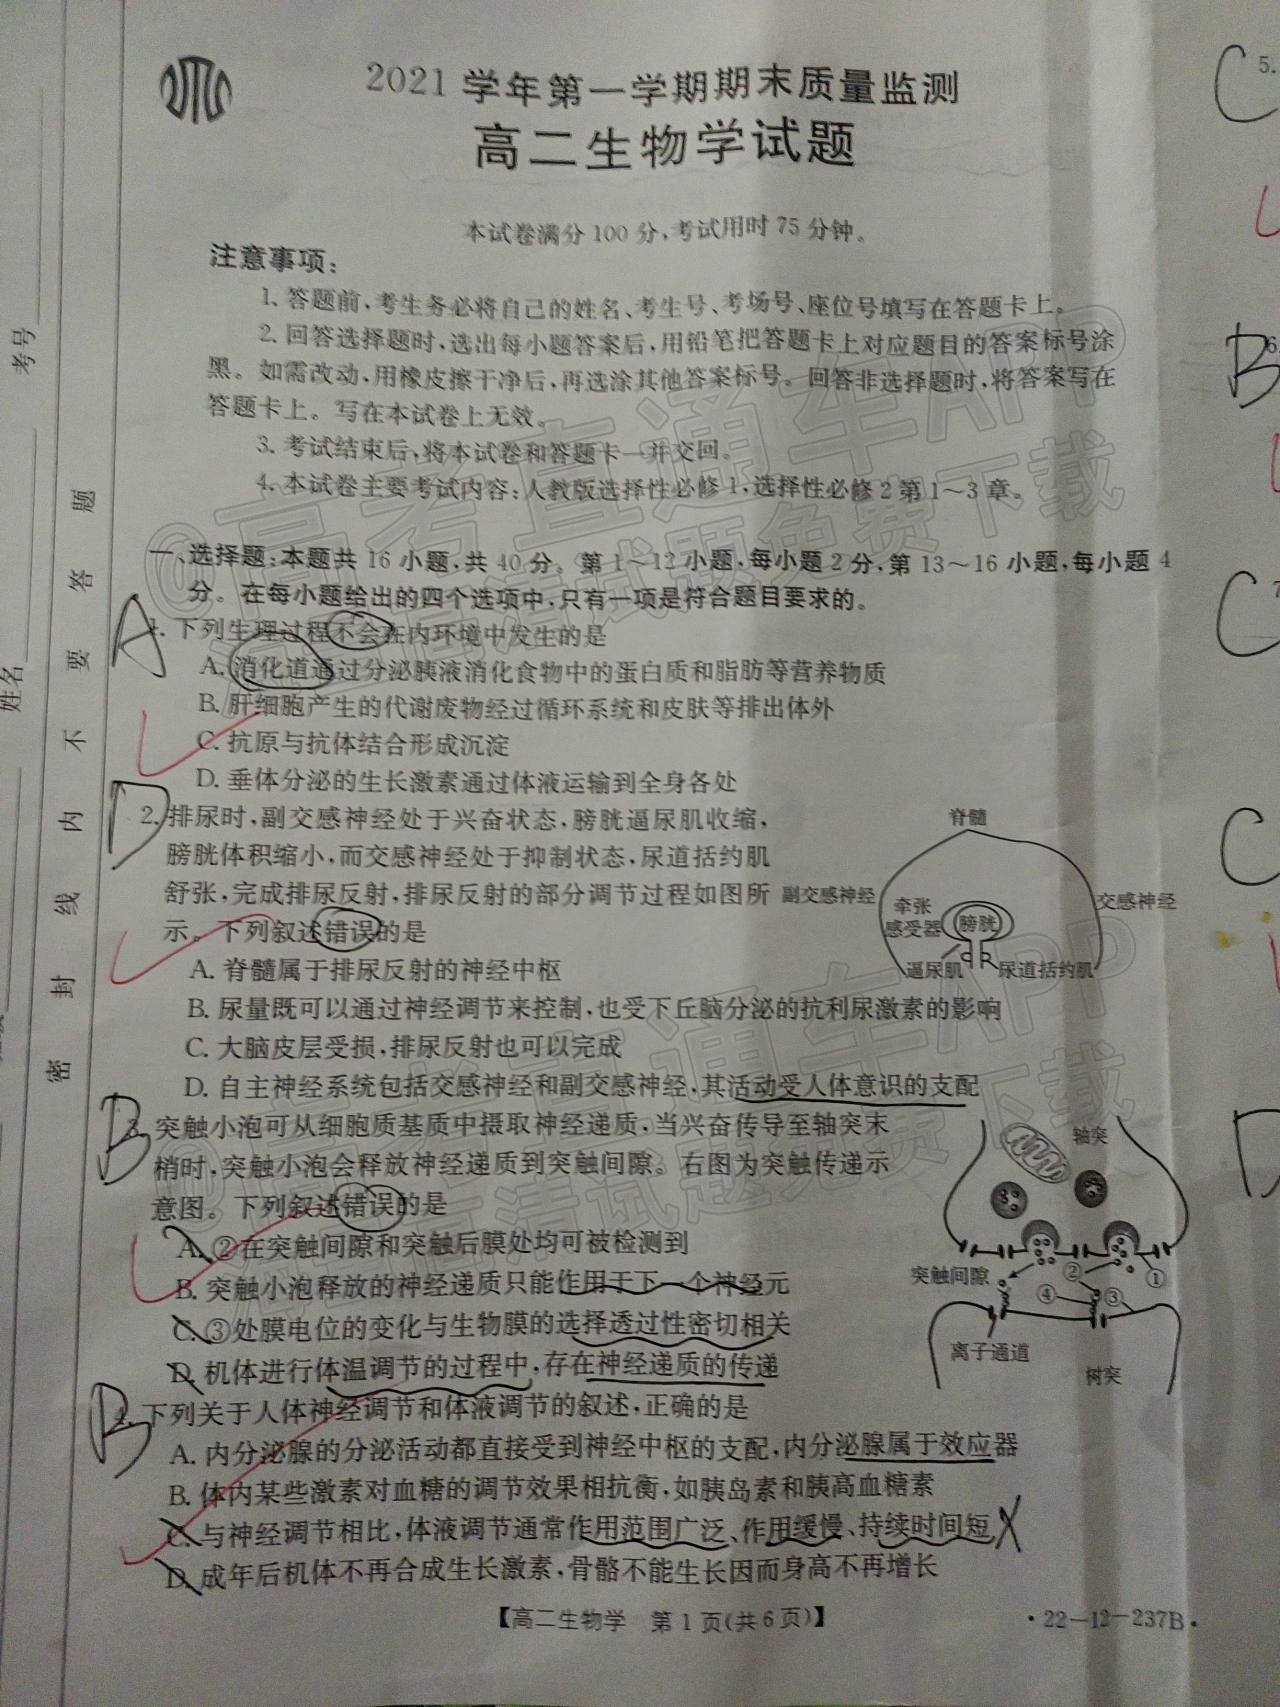 2021 学年第一学期期末质量监测
高二生物学试题
本试卷满分100分,考试用时75分钟。
注意事项:
1. 答题前,考生务必将自己的姓名、考生号、考场号、座位号填写在答题卡上。
2. 回答选择题时,选出每小题答案后,用铅笔把答题卡上对应题目的答案标号涂
黑。如需改动,用橡皮擦干净后,再选涂其他答案标号。回答非选择题时,将答案写在
答题卡上。写在本试卷上无效。
3. 考试结束后,将本试卷和答题卡一并交回。
4. 本试卷主要考试内容:人教版选择性必修1,选择性必修2第1～3章。
一、选择题:本题共16小题,共40分。第1～12小题,每小题2分,第13～16小题,每小题4
分。在每小题给出的四个选项中,只有一项是符合题目要求的。
A
1. 下列生理过程不会在内环境中发生的是
A. 消化道通过分泌胰液消化食物中的蛋白质和脂肪等营养物质
B. 肝细胞产生的代谢废物经过循环系统和皮肤等排出体外
C. 抗原与抗体结合形成沉淀
D. 垂体分泌的生长激素通过体液运输到全身各处
D
2. 排尿时,副交感神经处于兴奋状态,膀胱逼尿肌收缩,
膀胱体积缩小,而交感神经处于抑制状态,尿道括约肌
舒张,完成排尿反射,排尿反射的部分调节过程如图所
示。下列叙述错误的是
脊髓
副交感神经
交感神经
牵张
感受器
膀胱
逼尿肌
尿道括约肌
A. 脊髓属于排尿反射的神经中枢
B. 尿量既可以通过神经调节来控制,也受下丘脑分泌的抗利尿激素的影响
C. 大脑皮层受损,排尿反射也可以完成
D. 自主神经系统包括交感神经和副交感神经,其活动受人体意识的支配
B
3. 突触小泡可从细胞质基质中摄取神经递质,当兴奋传导至轴突末
梢时,突触小泡会释放神经递质到突触间隙。右图为突触传递示
意图。下列叙述错误的是
A. ②在突触间隙和突触后膜处均可被检测到
B. 突触小泡释放的神经递质只能作用于下一个神经元
C. ③处膜电位的变化与生物膜的选择透过性密切相关
D. 机体进行体温调节的过程中,存在神经递质的传递
轴突
突触间隙
②
①
④
③
离子通道
树突
B
4. 下列关于人体神经调节和体液调节的叙述,正确的是
A. 内分泌腺的分泌活动都直接受到神经中枢的支配,内分泌腺属于效应器
B. 体内某些激素对血糖的调节效果相抗衡,如胰岛素和胰高血糖素
C. 与神经调节相比,体液调节通常作用范围广泛、作用缓慢、持续时间短
D. 成年后机体不再合成生长激素,骨骼不能生长因而身高不再增长
【高二生物学 第1页(共6页)】
·22-12-237B·
考号
姓名
密封线内不要答题
@高考直通车APP
高清试题免费下载
@高考直通车APP
高清试题免费下载
C
5.
B
6.
C
7
C
D